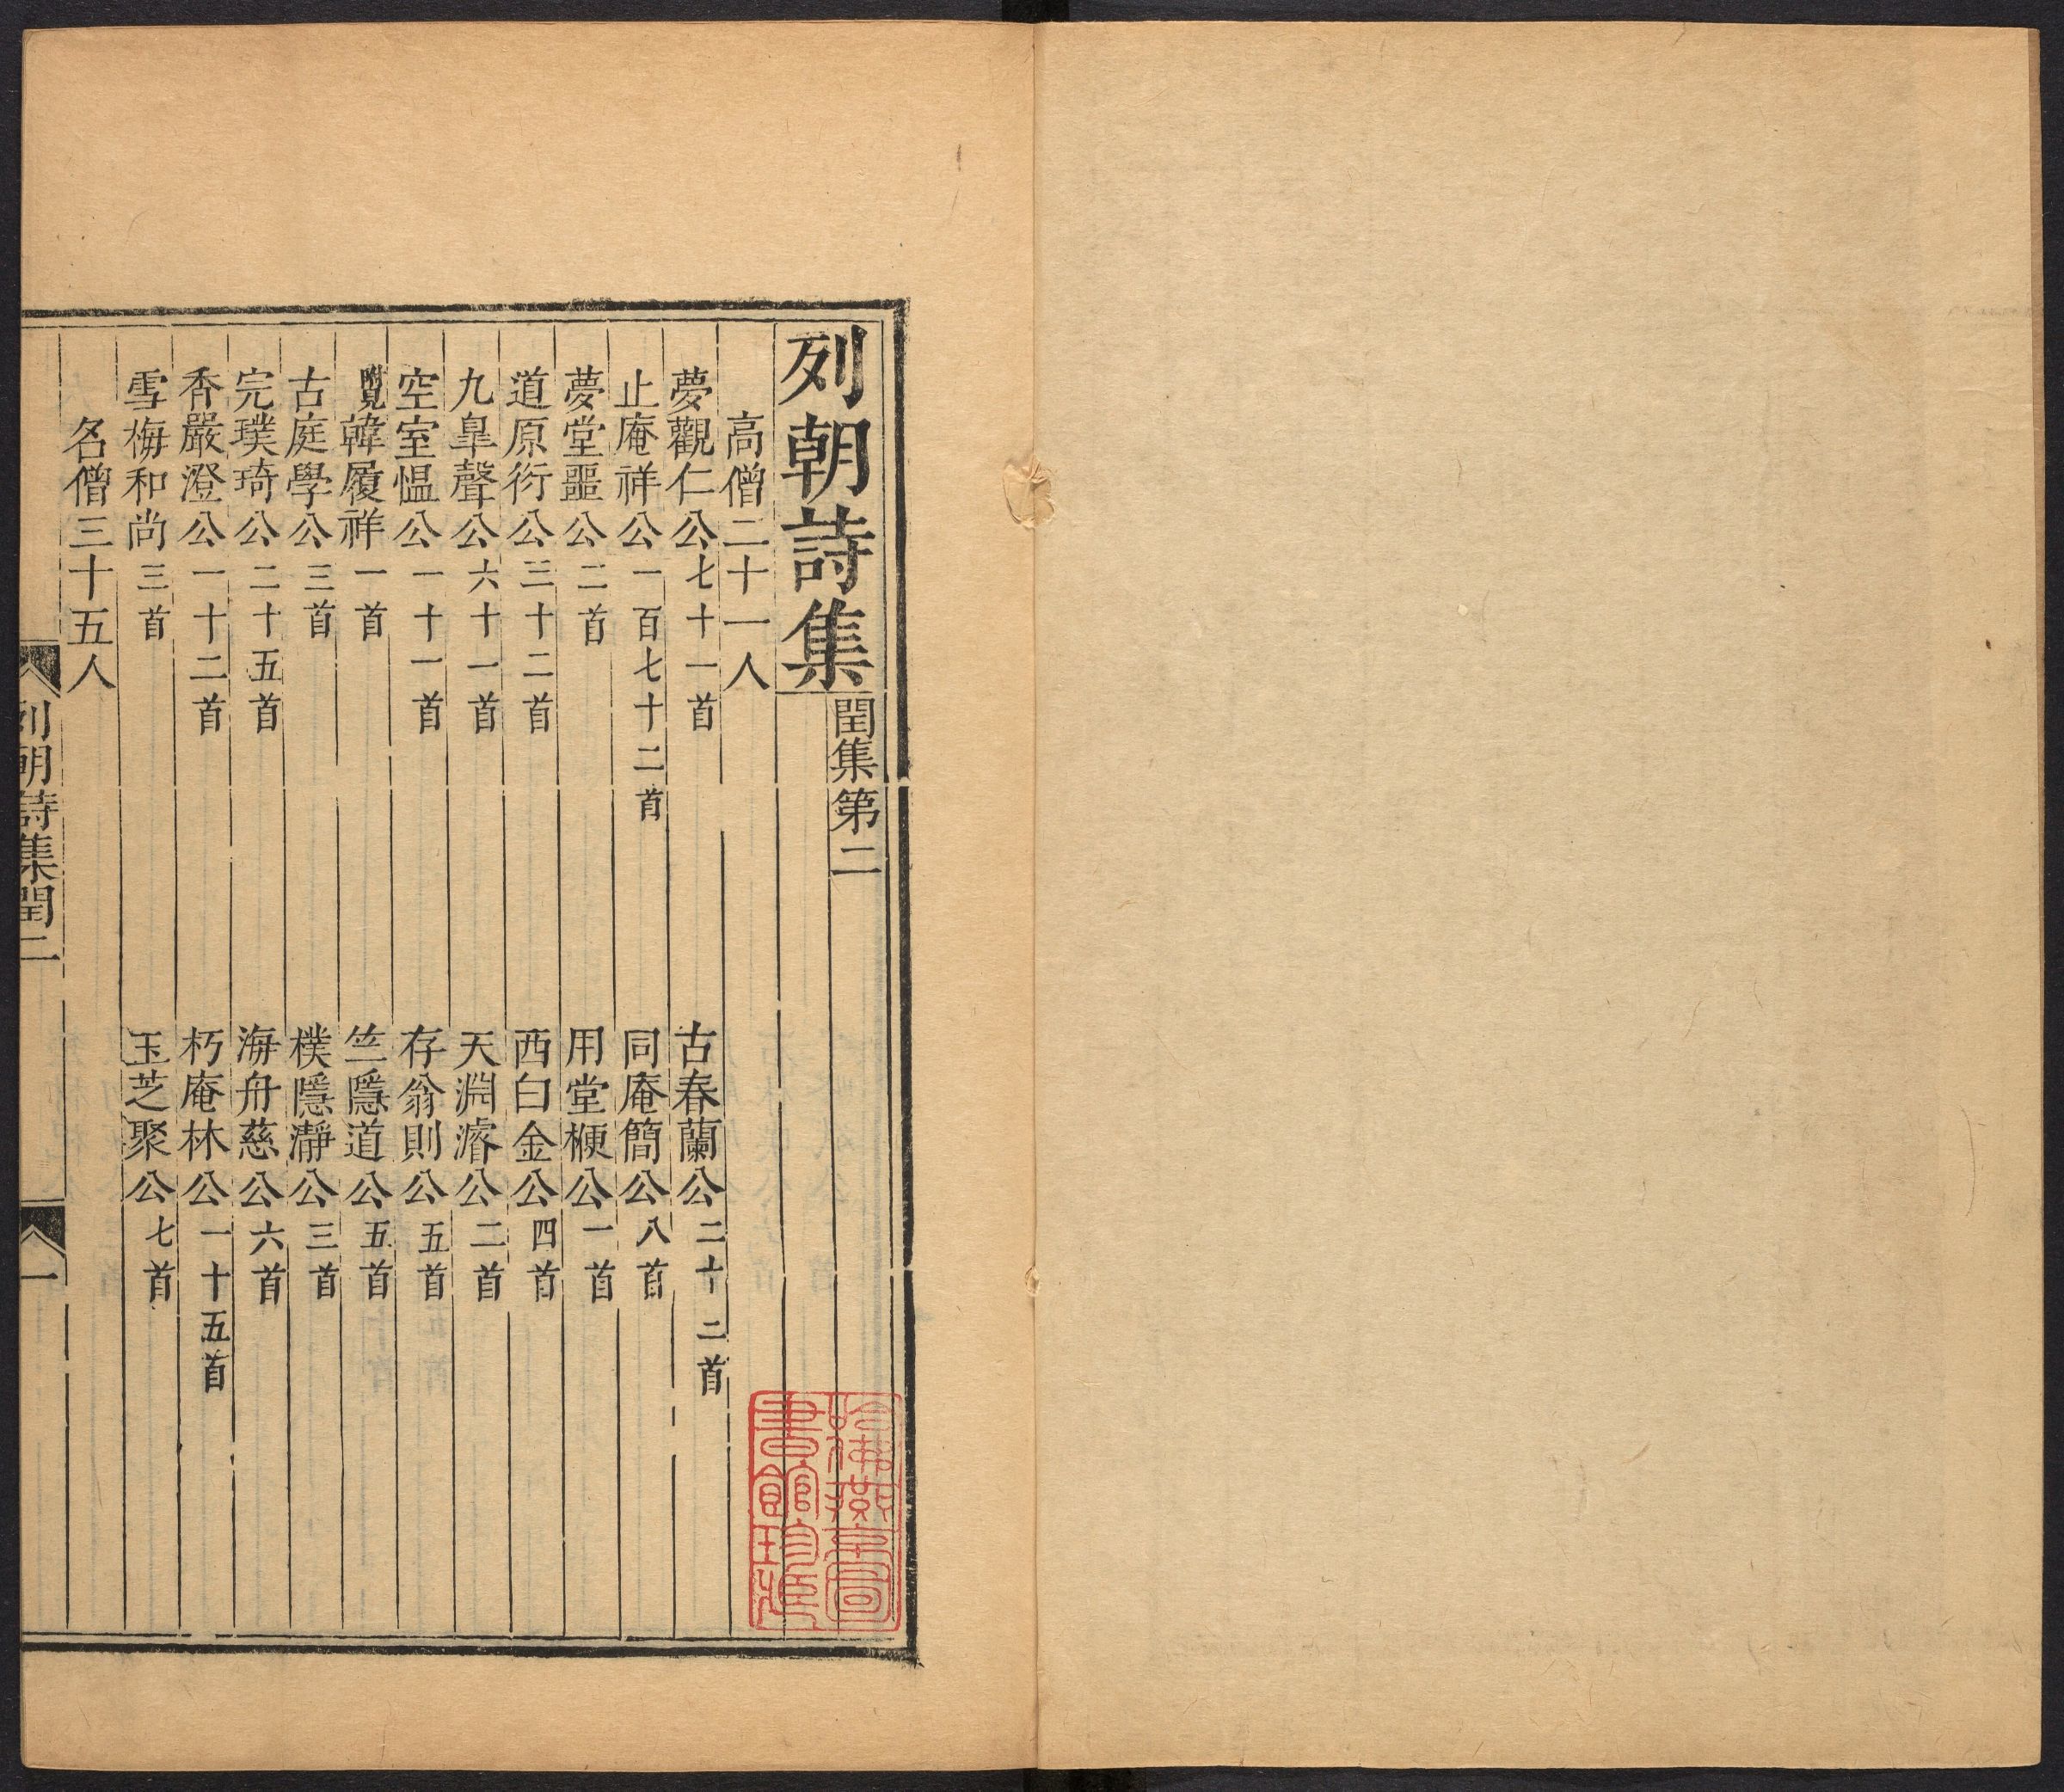 列朝詩集 閏集第二
高僧二十一人
夢觀仁公 七十一首 古春蘭公 二十二首
止庵祥公 一百七十二首 同庵簡公 八首
夢堂噩公 二首 用堂楩公 一首
道原衍公 三十二首 西白金公 四首
九臯聲公 六十一首 天淵濬公 二首
空室愠公 一十一首 存翁則公 五首
覽韓履祥 一首 竺隱道公 五首
古庭學公 三首 樸隱瀞公 三首
完璞琦公 二十五首 海舟慈公 六首
香嚴澄公 一十二首 朽庵林公 一十五首
雪梅和尚 三首 玉芝聚公 七首
名僧三十五人
列朝詩集閏二 一
哈佛燕京圖書館珍藏